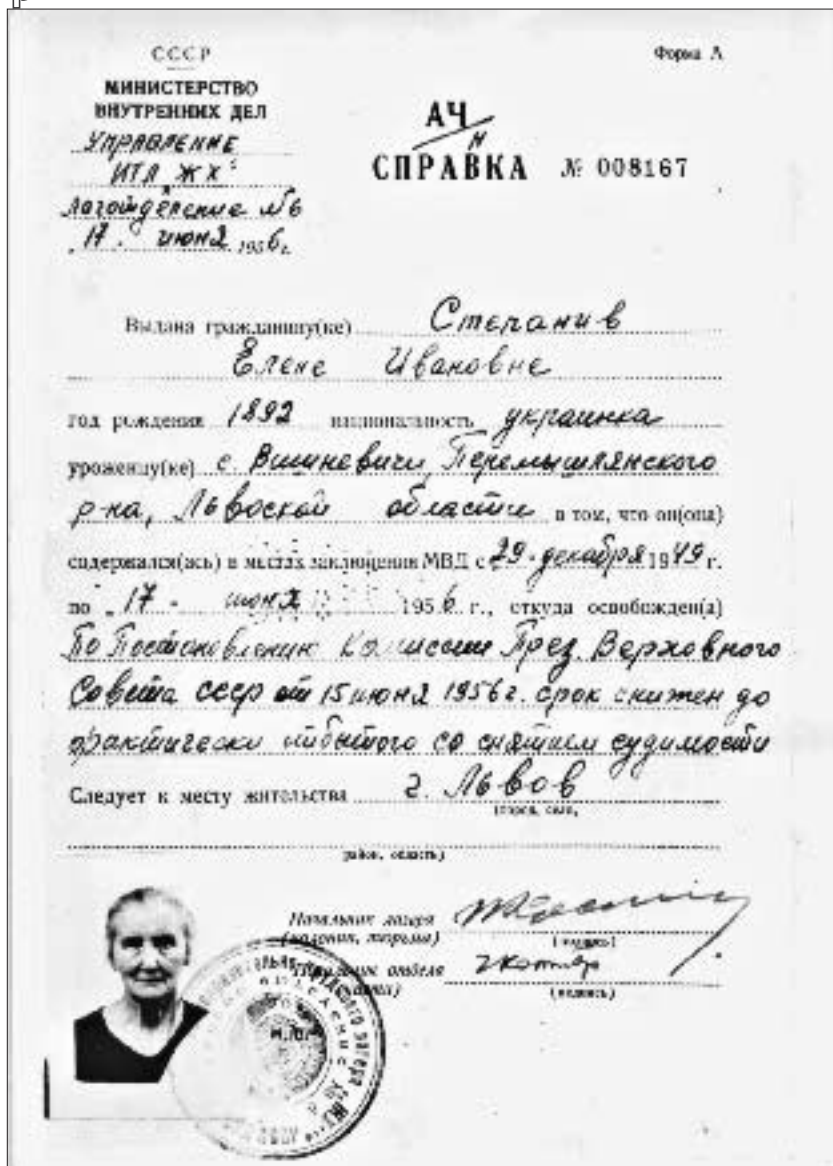 СССР
Форма А
МИНИСТЕРСТВО
ВНУТРЕННИХ ДЕЛ
Управление
ИТЛ "ЖХ"
Лаготделение №6
"17" июня 1956 г.
АЧ/Н
СПРАВКА № 008167
Выдана гражданину(ке) Степанив
Елене Ивановне
год рождения 1892 национальность украинка
уроженцу(ке) с. Вишневичи, Перемышлянского
р-на, Львоской области в том, что он(она)
содержался(ась) в местах заключения МВД с 29 декабря 1949 г.
по "17" июня 1956 г., откуда освобожден(а)
По Постановлению Комиссии През. Верховного
Совета ссср от 15 июня 1956 г. срок снижен до
фактически отбытого со снятием судимости
Следует к месту жительства г. Львов
(город, село,
район, область)
Начальник лагеря
(колонии, тюрьмы)
(подпись)
Начальник отдела
(части)
(подпись)